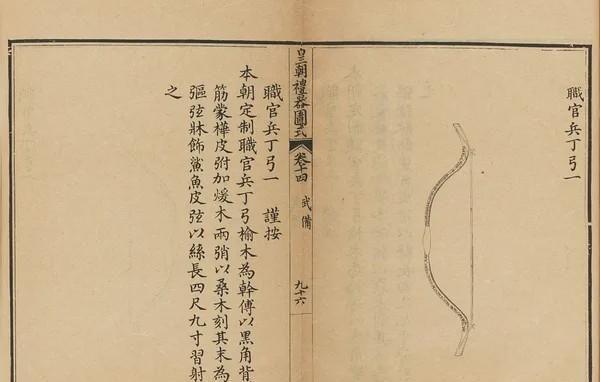 職官兵丁弓一
皇朝禮器圖式 卷十四 武備 九十六
職官兵丁弓一 謹按
本朝定制職官兵丁弓榆木為幹傅以黑角背
筋蒙樺皮弣加煖木兩弰以桑木刻其末為
彄弦牀飾鯊魚皮弦以絲長四尺九寸習射
之